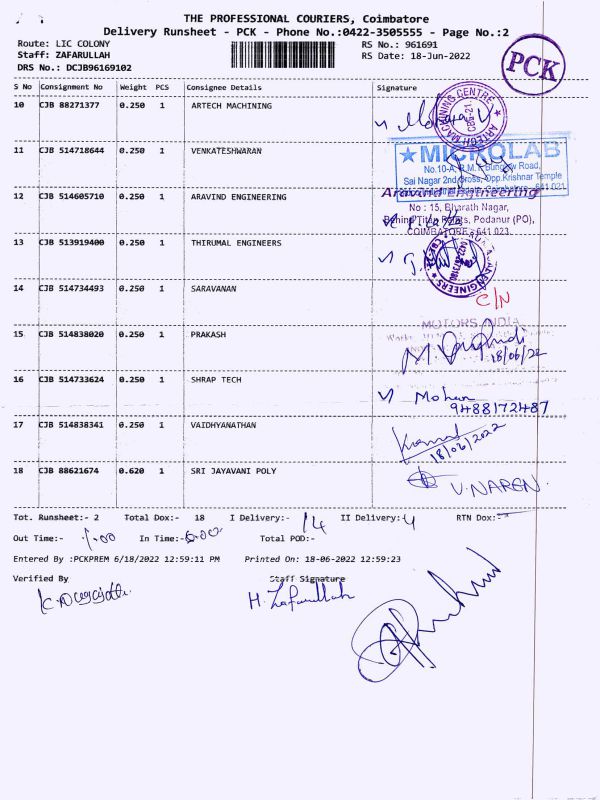 THE PROFESSIONAL COURIERS, Coimbatore
Delivery Runsheet - PCK - Phone No.:0422-3505555 - Page No.:2
Route: LIC COLONY
RS No.: 961691
Staff: ZAFARULLAH
RS Date: 18-Jun-2022
DRS No.: DCJB96169102
PCK
S No Consignment No Weight PCS Consignee Details Signature
10 CJB 88271377 0.250 1 ARTECH MACHINING
ARTECH MACHINING CENTRE
CBE-21
11 CJB 514718644 0.250 1 VENKATESHWARAN
★ MICROLAB
Sai Nagar 2nd Cross, Opp.Krishnar Temple
12 CJB 514605710 0.250 1 ARAVIND ENGINEERING
Aravind Engineering
No : 15, Bharath Nagar,
Podanur (PO),
COIMBATORE - 641 023.
13 CJB 513919400 0.250 1 THIRUMAL ENGINEERS
ENGINEERS
14 CJB 514734493 0.250 1 SARAVANAN
C/N
15 CJB 514838020 0.250 1 PRAKASH
MOTORS INDIA
18/06/22
16 CJB 514733624 0.250 1 SHRAP TECH
Mohan
9488172487
17 CJB 514838341 0.250 1 VAIDHYANATHAN
18/06/2022
18 CJB 88621674 0.620 1 SRI JAYAVANI POLY
V.NAREN.
Tot. Runsheet:- 2 Total Dox:- 18 I Delivery:- 14 II Delivery:- 4 RTN Dox:-
Out Time:- 1.00 In Time:- 6.00 Total POD:-
Entered By :PCKPREM 6/18/2022 12:59:11 PM Printed On: 18-06-2022 12:59:23
Verified By Staff Signature
H. Zafarullah